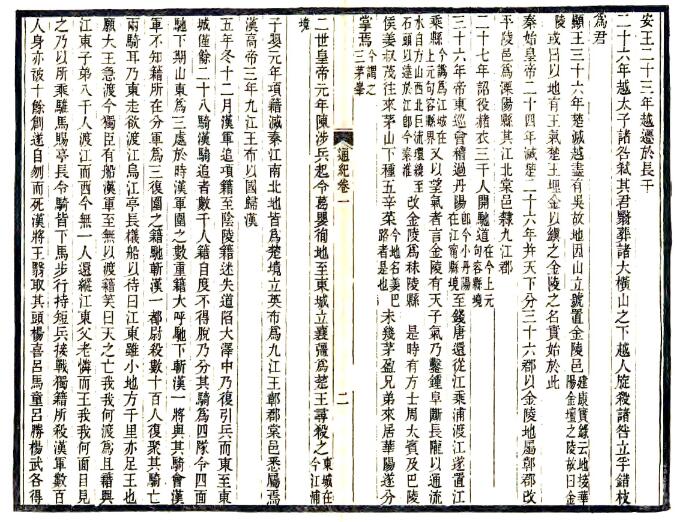 安王二十三年越遷於長干
二十六年越太子諸咎弒其君翳葬諸大橫山之下越人旋殺諸咎立孚錯枝
為君
顯王三十六年楚滅越盡有吳故地因山立號置金陵邑建康實錄云地接華陽金壇之陵故曰金
陵或曰以地有王氣楚王埋金以鎮之金陵之名實始於此
秦始皇帝二十四年滅楚二十六年并天下分三十六郡以金陵地屬鄣郡改
平陵邑為溧陽縣其江北棠邑隸九江郡
二十七年詔役赭衣三千人開馳道在今上元句容縣境
三十六年帝東巡會稽過丹陽即今小丹陽在江寧縣境至錢唐還從江乘浦渡江遂置江
乘縣今謂為江城在上元句容縣界又以望氣者言金陵有天子氣乃鑿鍾阜斷長隴以通流
水自方山西北巨流環繞至石頭以達於江即今秦淮改金陵為秣陵縣 是時有方士周太賓及巴陵
侯姜叔茂往來茅山下種五辛菜今地名姜巴路者是也未幾茅盈兄弟來居華陽遂分
掌焉今謂之三茅峯
通紀卷一
二
二世皇帝元年陳涉兵起令葛嬰徇地至東城立襄彊為楚王尋殺之東城在今江浦
境
子嬰元年項籍滅秦江南北地皆為楚壤立英布為九江王鄣郡棠邑悉屬焉
漢高帝三年九江王布以國歸漢
五年冬十二月漢軍追項籍至陰陵籍迷失道陷大澤中乃復引兵而東至東
城僅餘二十八騎漢騎追者數千人籍自度不得脫乃分其騎為四隊令四面
馳下期山東為三處於時漢軍圍之數重籍大呼馳下斬漢一將與其騎會漢
軍不知籍所在分軍為三復圍之籍馳斬漢一都尉殺數十百人復聚其騎亡
兩騎耳乃東走欲渡江烏江亭長檥船以待曰江東雖小地方千里亦足王也
願大王急渡今獨臣有船漢軍至無以渡籍笑曰天之亡我我何渡為且籍與
江東子弟八千人渡江而西今無一人還縱江東父老憐而王我我何面目見
之乃以所乘騅馬賜亭長令騎皆下馬步行持短兵接戰獨籍所殺漢軍數百
人身亦被十餘創遂自刎而死漢將王翳取其頭楊喜呂馬童呂勝楊武各得